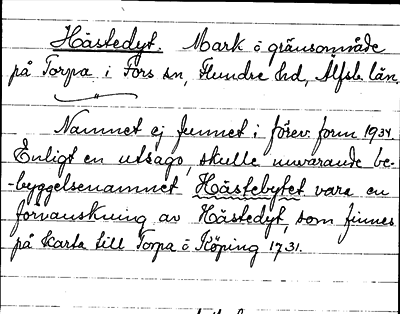 Hästedyt. Mark o gränsområde
på Torpa i Fors sn, Flundre hd, Älfsb. län.
Namnet ej funnet i förev. form 1934.
Enligt en utsago, skulle nuvarande be-
-byggelsenamnet Hästebytet vara en
förvanskning av Hästedyt, som finnes
på karta till Torpa o Köping 1731.